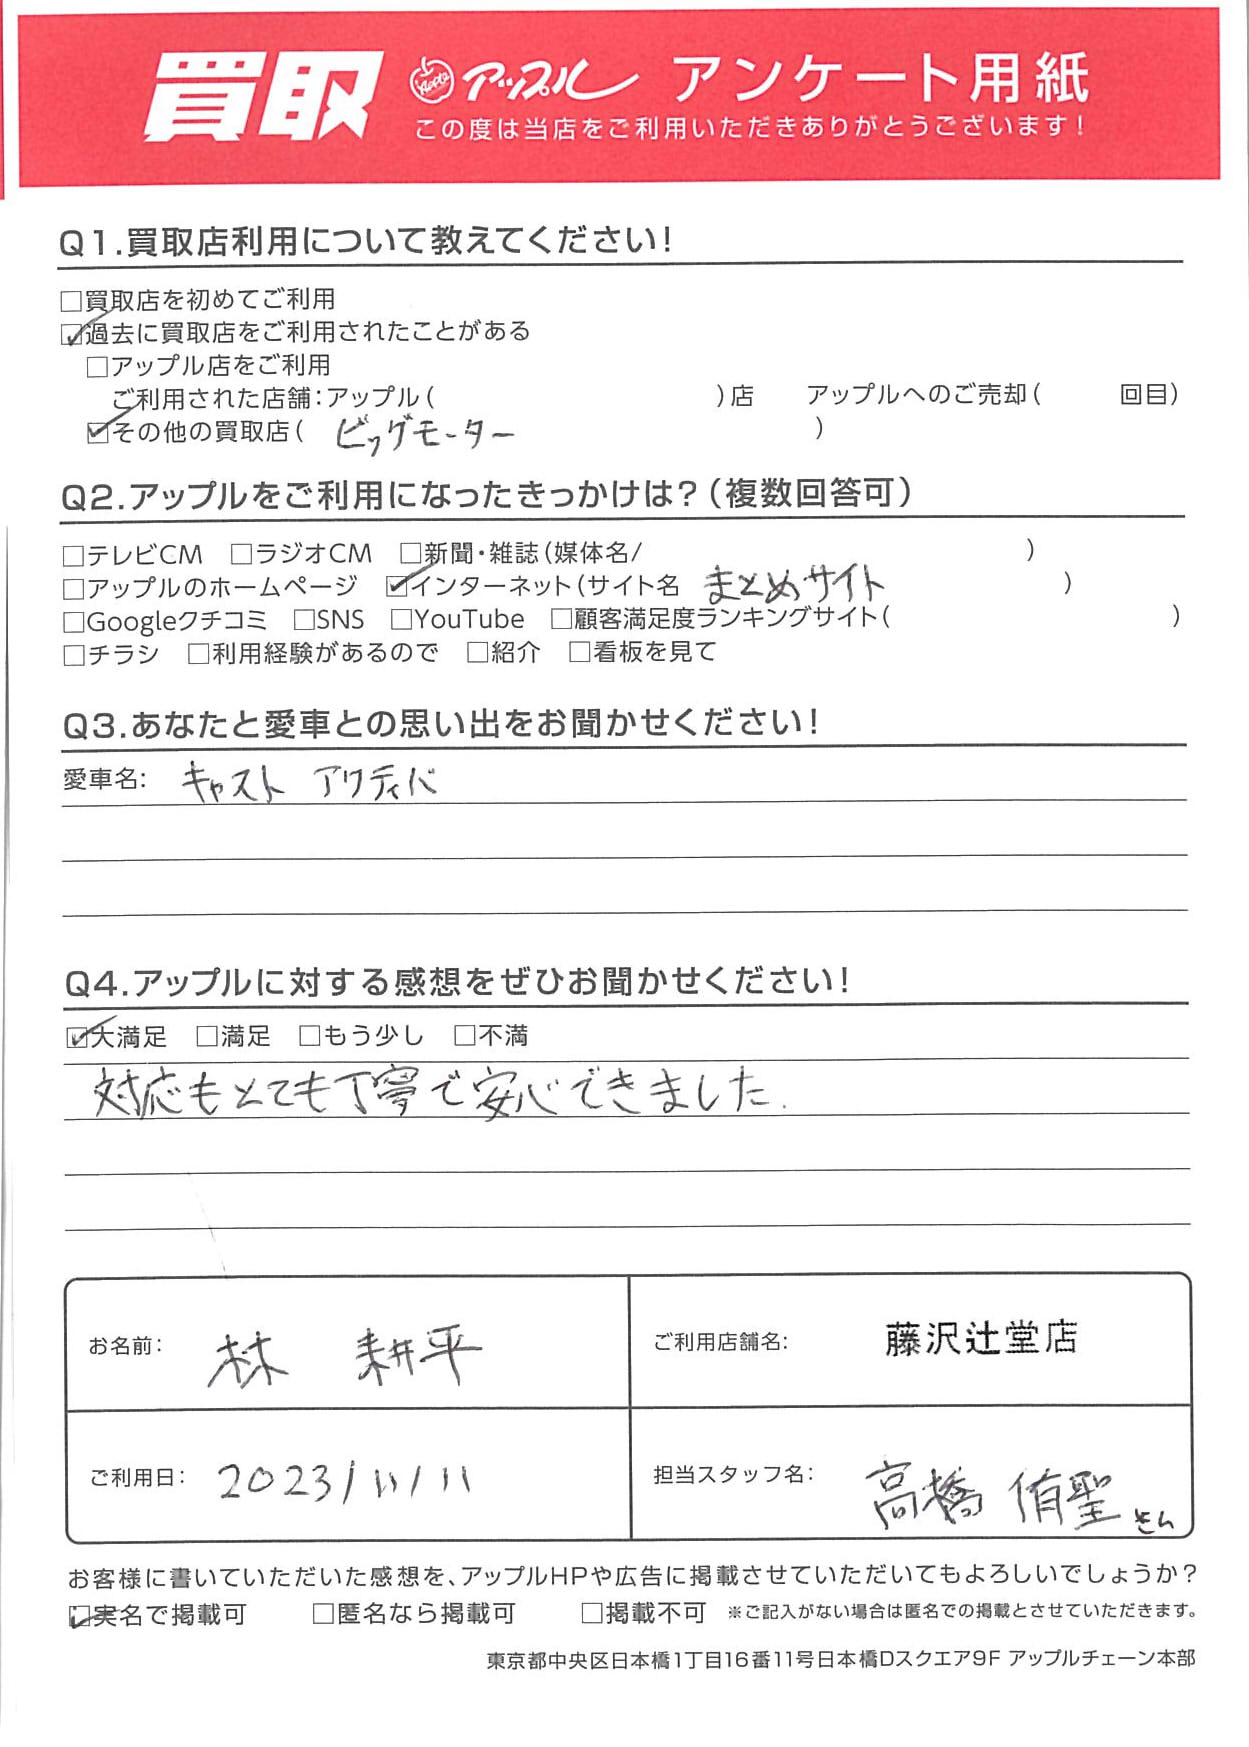 買取 Apple アップル アンケート用紙
この度は当店をご利用いただきありがとうございます！
Q1.買取店利用について教えてください！
□買取店を初めてご利用
☑過去に買取店をご利用されたことがある
□アップル店をご利用
ご利用された店舗：アップル（ ）店 アップルへのご売却（ 回目）
☑その他の買取店（ ビッグモーター ）
Q2.アップルをご利用になったきっかけは？（複数回答可）
□テレビCM □ラジオCM □新聞・雑誌（媒体名/ ）
□アップルのホームページ ☑インターネット（サイト名 まとめサイト ）
□Googleクチコミ □SNS □YouTube □顧客満足度ランキングサイト（ ）
□チラシ □利用経験があるので □紹介 □看板を見て
Q3.あなたと愛車との思い出をお聞かせください！
愛車名： キャスト アクティバ
Q4.アップルに対する感想をぜひお聞かせください！
☑大満足 □満足 □もう少し □不満
対応もとても丁寧で安心できました.
お名前： 林 耕平
ご利用店舗名： 藤沢辻堂店
ご利用日： 2023/11/11
担当スタッフ名： 高橋 侑聖さん
お客様に書いていただいた感想を、アップルHPや広告に掲載させていただいてもよろしいでしょうか？
☑実名で掲載可 □匿名なら掲載可 □掲載不可 ※ご記入がない場合は匿名での掲載とさせていただきます。
東京都中央区日本橋1丁目16番11号日本橋Dスクエア9F アップルチェーン本部